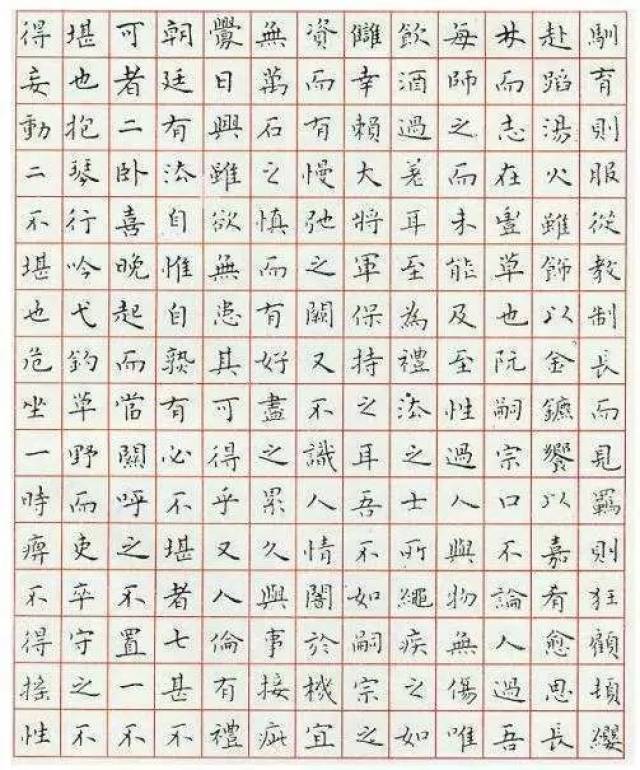 馴育則服從教制長而見羈則狂顧頓纓
赴蹈湯火雖飾以金鑣饗以嘉肴愈思長
林而志在豐草也阮嗣宗口不論人過吾
每師之而未能及至性過人與物無傷唯
飲酒過差耳至為禮法之士所繩疾之如
讎幸賴大將軍保持之耳吾不如嗣宗之
資而有慢弛之闕又不識人情闇於機宜
無萬石之慎而有好盡之累久與事接疵
釁日興雖欲無患其可得乎又人倫有禮
朝廷有法自惟自熟有必不堪者七甚不
可者二卧喜晚起而當關呼之不置一不
堪也抱琴行吟弋釣草野而吏卒守之不
得妄動二不堪也危坐一時痹不得搖性